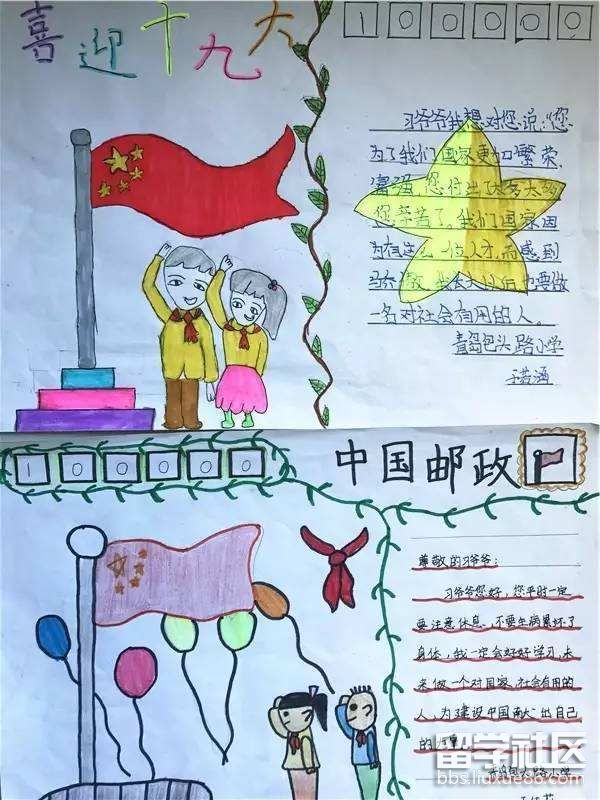 喜迎十九大
100000
习爷爷我想对您说:“您
为了我们国家更加繁荣、
富强,您付出了太多太多
您辛苦了。我们国家因
为有这么一位人才,而感到
我长大以后也要做
一名对社会有用的人。
青岛包头路小学
于若涵
100000
中国邮政
尊敬的习爷爷:
习爷爷您好,您平时一定
要注意休息,不要生病累坏了
身体,我一定会好好学习,未
来做一个对国家,社会有用的
人,为建设中国 出自己
的力量。
青岛包头路小学
留学社区
bbs.liuxue86.com